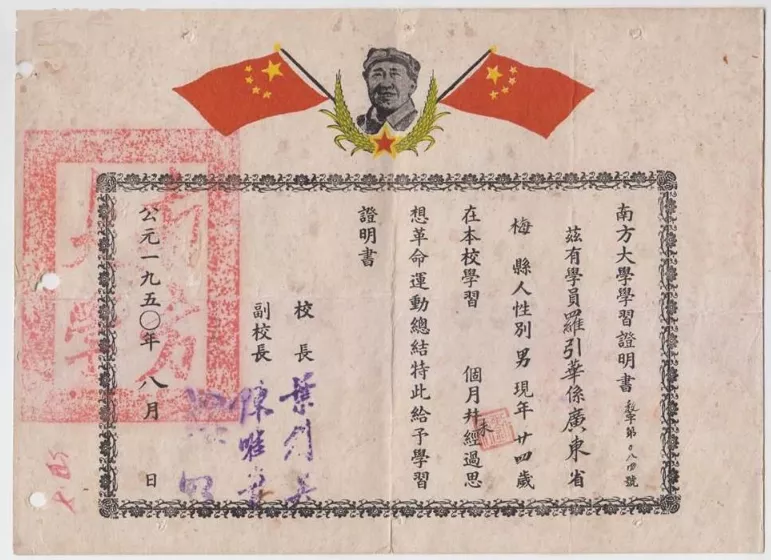 南方大學學習證明書 字第〇八四號
茲有學員羅引華係廣東省
梅縣人性別男現年廿四歲
在本校學習 個月并未經過思
想革命運動總結特此給予學習
證明書
校長 葉劍英
副校長 陳唯實
公元一九五〇年八月 日
南方
大學